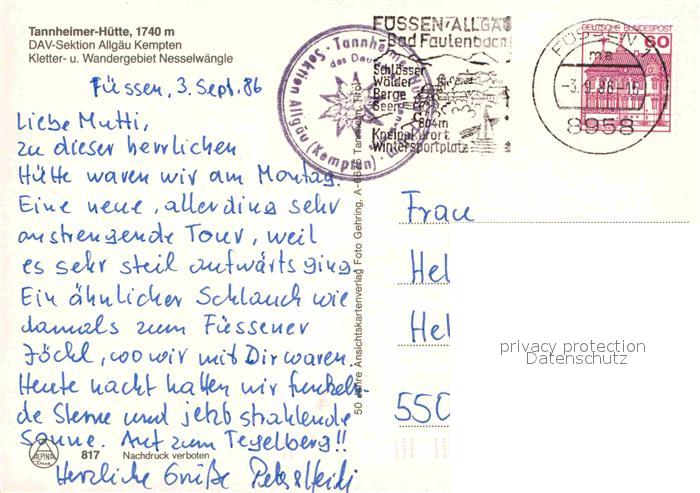 Tannheimer-Hütte, 1740 m
DAV-Sektion Allgäu Kempten
Kletter- u. Wandergebiet Nesselwängle
Füssen, 3. Sept. 86
Liebe Mutti,
zu dieser herrlichen
Hütte waren wir am Montag.
Eine neue, allerdings sehr
anstrengende Tour, weil
es sehr steil aufwärts ging.
Ein ähnlicher Schlauch wie
damals zum Füssener
Jöchl, wo wir mit Dir waren.
Heute nacht hatten wir funkeln-
de Sterne und jetzt strahlende
Sonne. Auf zum Tegelberg!!
Herzliche Grüße Peter + Heidi
ALPINA
Druck
817 Nachdruck verboten
50 Jahre Ansichtskartenverlag Foto Gehring, Tannheim, Tirol
Tannheimer Hütte
des Deu
Sektion Allgäu (Kempten)
FÜSSEN/ALLGÄU
Bad Faulenbach
Schlösser
Wälder
Berge
Seen
804m
Kneippkurort
Wintersportplatz
FÜSSEN 1
ma
-3.9.86-16
8958
DEUTSCHE BUNDESPOST
60
Frau
Hel
Hel
550
privacy protection
Datenschutz